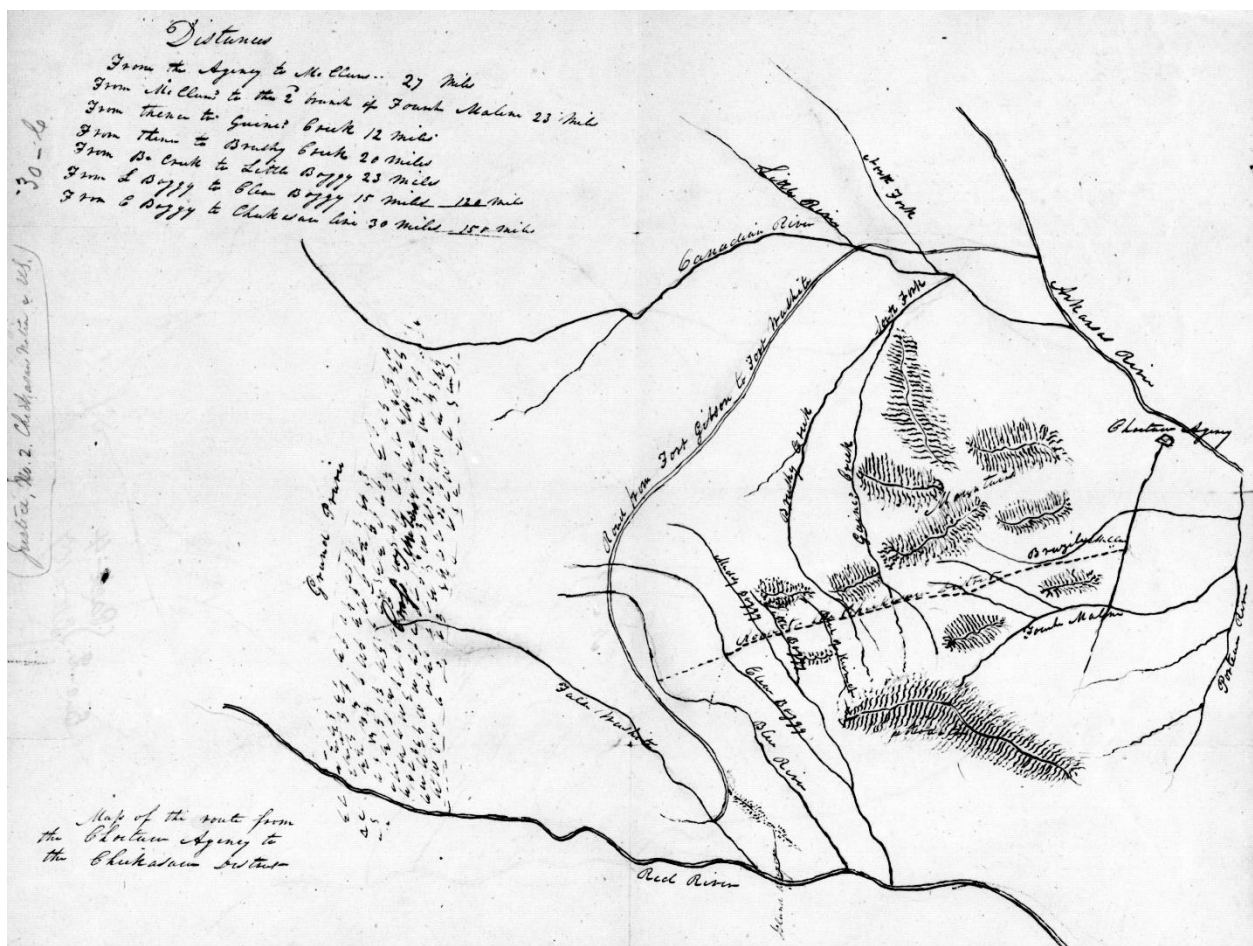 Distances
From the Agency to McClures.. 27 Miles
From McClures to the 2d branch of Fourch Maline 23 Miles
From thence to Guines Creek 12 miles
From thence to Brushy Creek 20 miles
From Bo Creek to Little Boggy 23 miles
From L Boggy to Clear Boggy 15 miles 120 miles
From C Boggy to Chickasaw line 30 miles 150 miles
30-C
Justice, No. 2. Chickasaw Nation & U.S.
Little River
North Fork
Canadian River
Arkansas River
South Fork
Road from Fort Gibson to Fort Washita
Choctaw Agency
Brushy Creek
Gaines Creek
Mountains
Grand Prairie
Cross Timbers
Muddy Boggy
Little Boggy
Fourch Maline
Clear Boggy
Blue River
Poteau River
Falls Washita
Map of the route from
the Choctaw Agency to
the Chickasaw District
Red River
Island